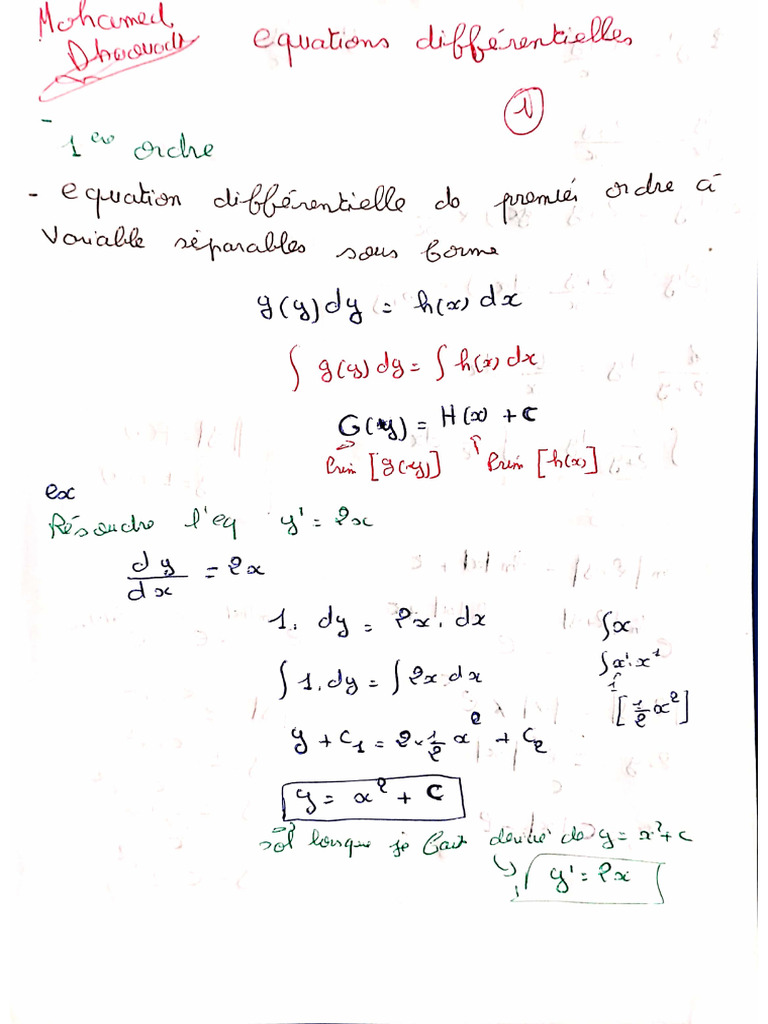 Mohamed
Dhaouadi
equations différentielles
1
- 1er ordre
- equation différentielle do premiér ordre à
Variable séparables sous forme
g(y) dy = h(x) dx
∫ g(y) dy = ∫ h(x) dx
G(y) = H(x) + C
Prim [g(y)] Prim [h(x)]
ex
Résoudre l'eq y' = 2x
dy/dx = 2x
1. dy = 2x. dx ∫x
∫ 1. dy = ∫ 2x. dx ∫x'. x¹
y + C₁ = 2 × 1/2 x² + C₂ [1/2 x²]
y = x² + C
sol lorsque je fait derivé do y = x² + c
y' = 2x